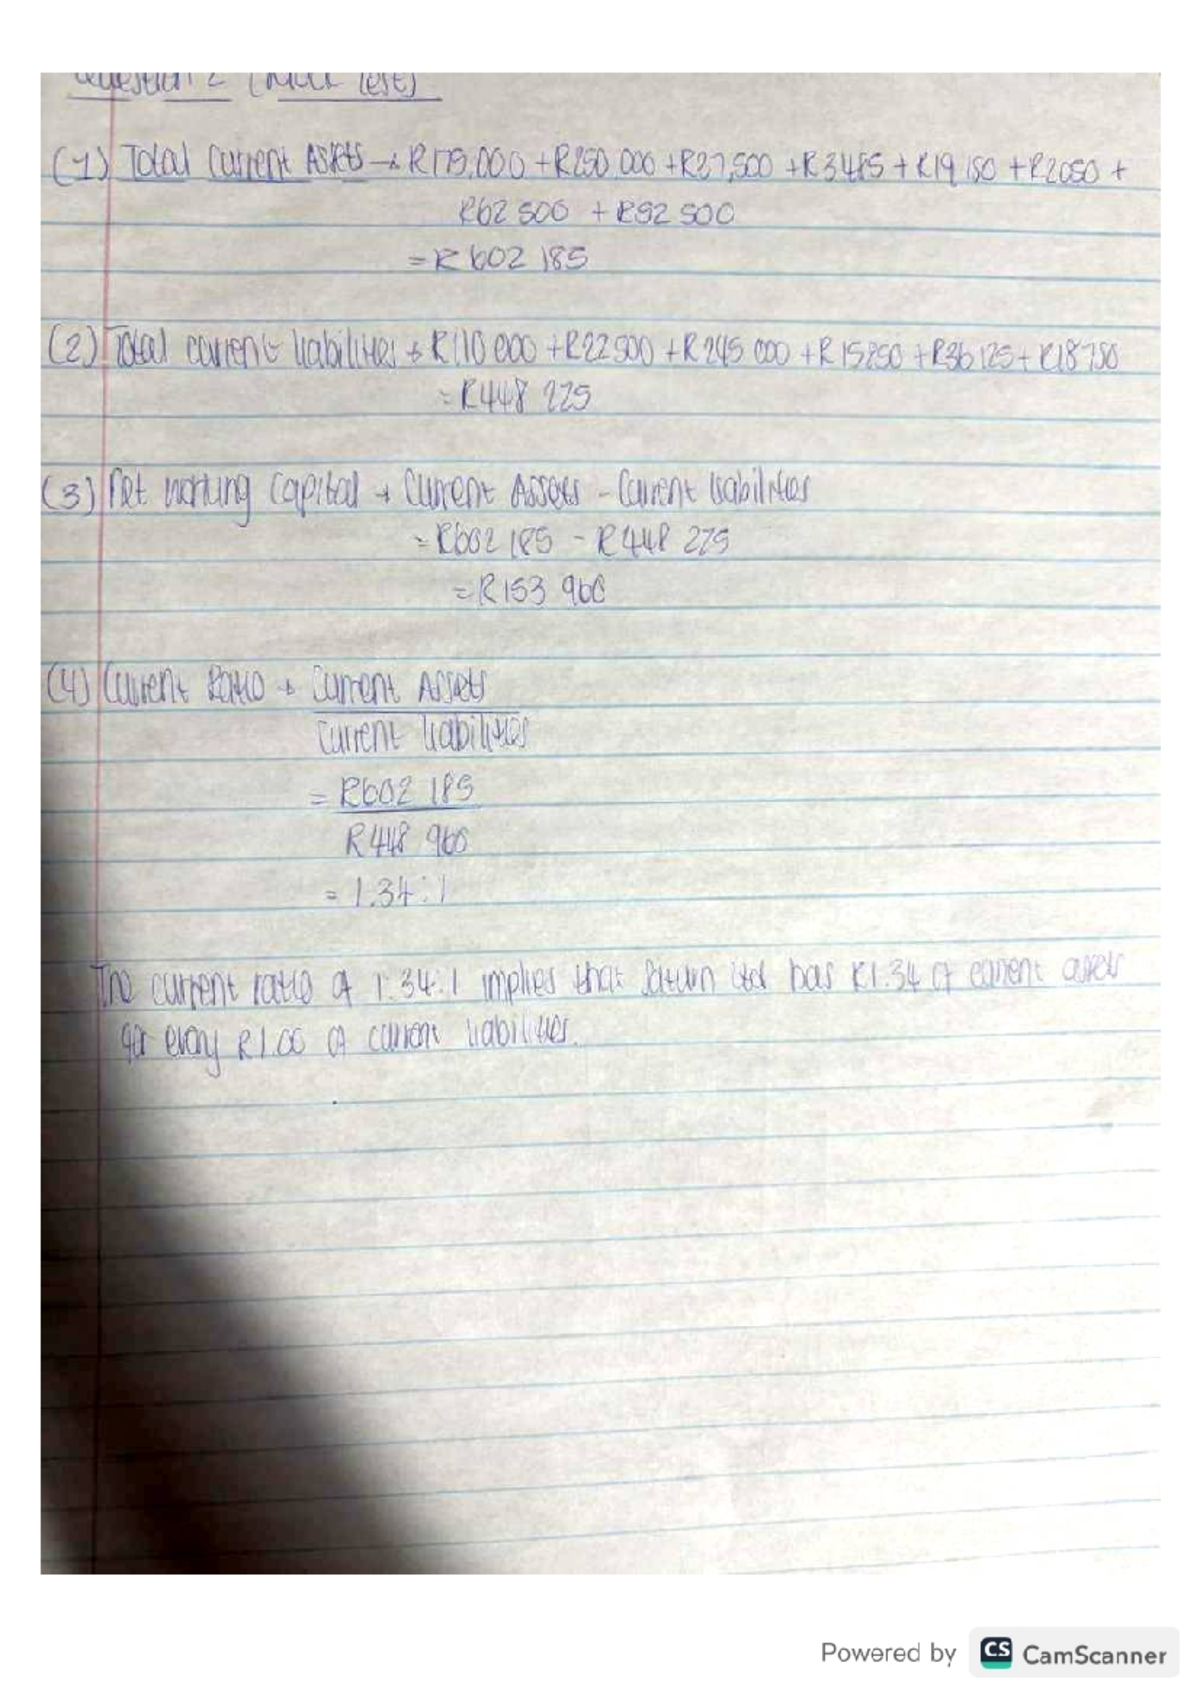 Question 2 (Mock Test)
(1) Total Current Assets → R175,000 + R250 000 + R27,500 + R3485 + R19 150 + R2050 +
R62 500 + R62 500
= R 602 185
(2) Total current liabilities → R110 000 + R22 500 + R245 000 + R15850 + R36 125 + R18 750
= R448 225
(3) Net working Capital → Current Assets - Current liabilities
= R602 185 - R448 225
= R153 960
(4) Current Ratio → Current Assets
Current liabilities
= R602 185
R448 960
= 1.34:1
The current ratio of 1.34:1 implies that Ltd has R1.34 of current assets
for every R1.00 of current liabilities.
Powered by CS CamScanner